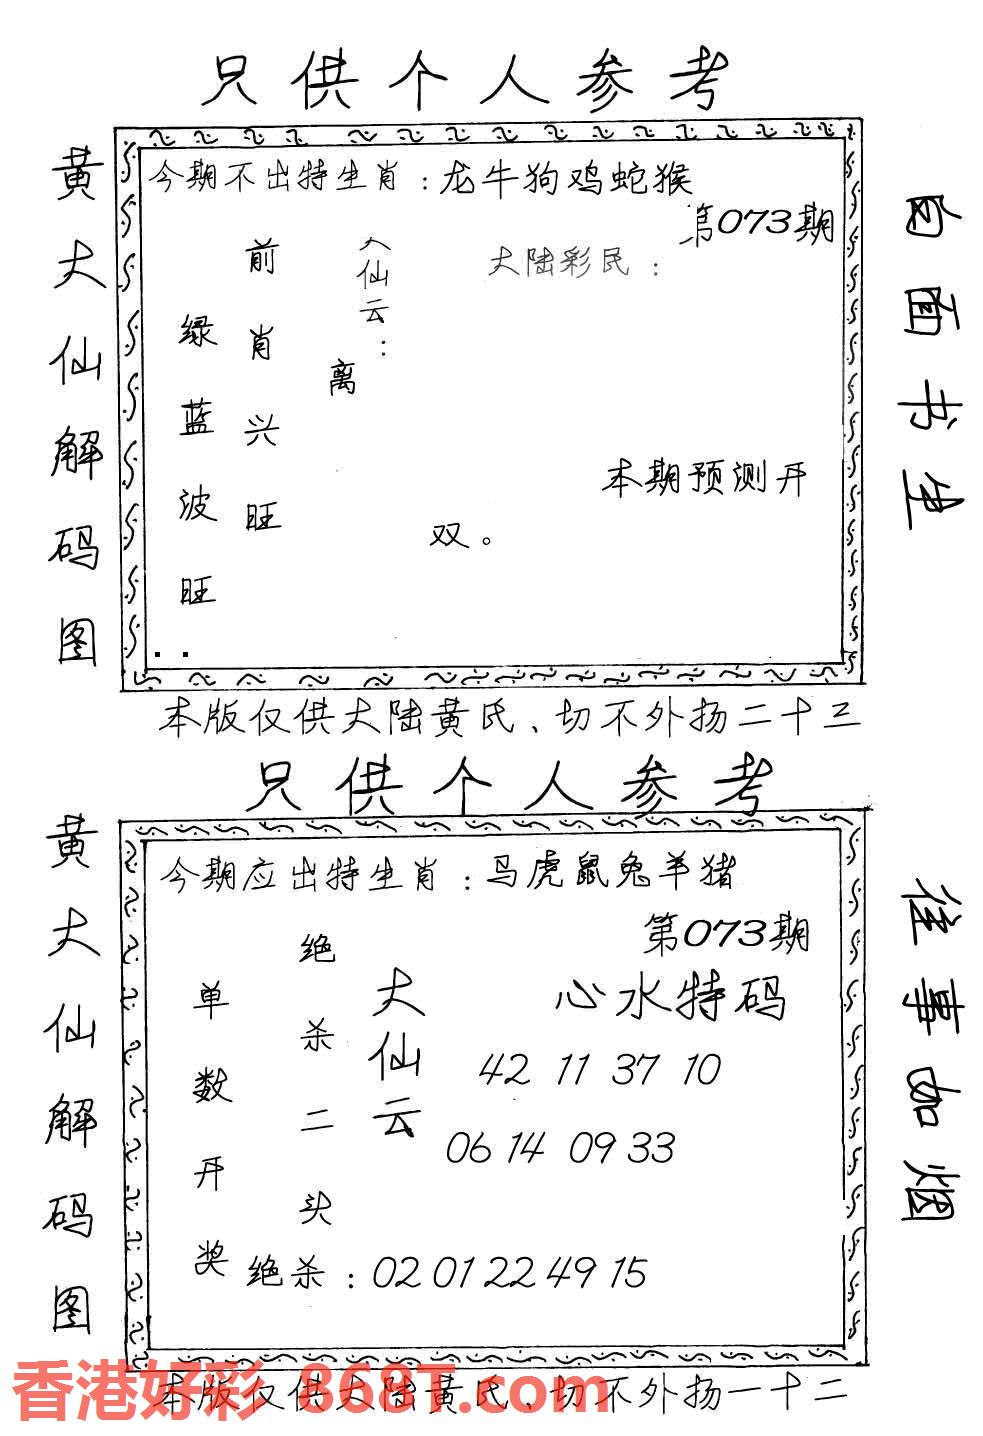 只供个人参考
黄大仙解码图
今期不出特生肖：龙牛狗鸡蛇猴
第073期
大陆彩民：
大仙云：
离
前肖兴旺
绿蓝波旺
本期预测开
双。
白面书生
本版仅供大陆黄氏、切不外扬二十三
只供个人参考
黄大仙解码图
今期应出特生肖：马虎鼠兔羊猪
第073期
心水特码
42 11 37 10
06 14 09 33
大仙云
绝杀二头
单数开奖
绝杀：02 01 22 49 15
往事如烟
本版仅供大陆黄氏、切不外扬一十二
香港好彩 868T.com